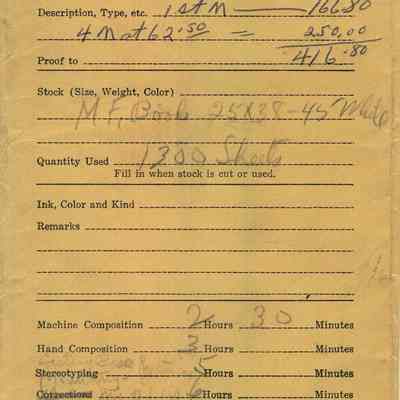 Description, Type, etc. 1st M — 166.80
4 M at 62.50 = 250.00
Proof to 416.80
Stock (Size, Weight, Color)
M.F. Book 25X38-45 White
Quantity Used 1300 Sheets
Fill in when stock is cut or used.
Ink, Color and Kind
Remarks
Machine Composition 2 Hours 30 Minutes
Hand Composition 3 Hours Minutes
Stereotyping 5 Hours Minutes
Corrections 6 Hours Minutes